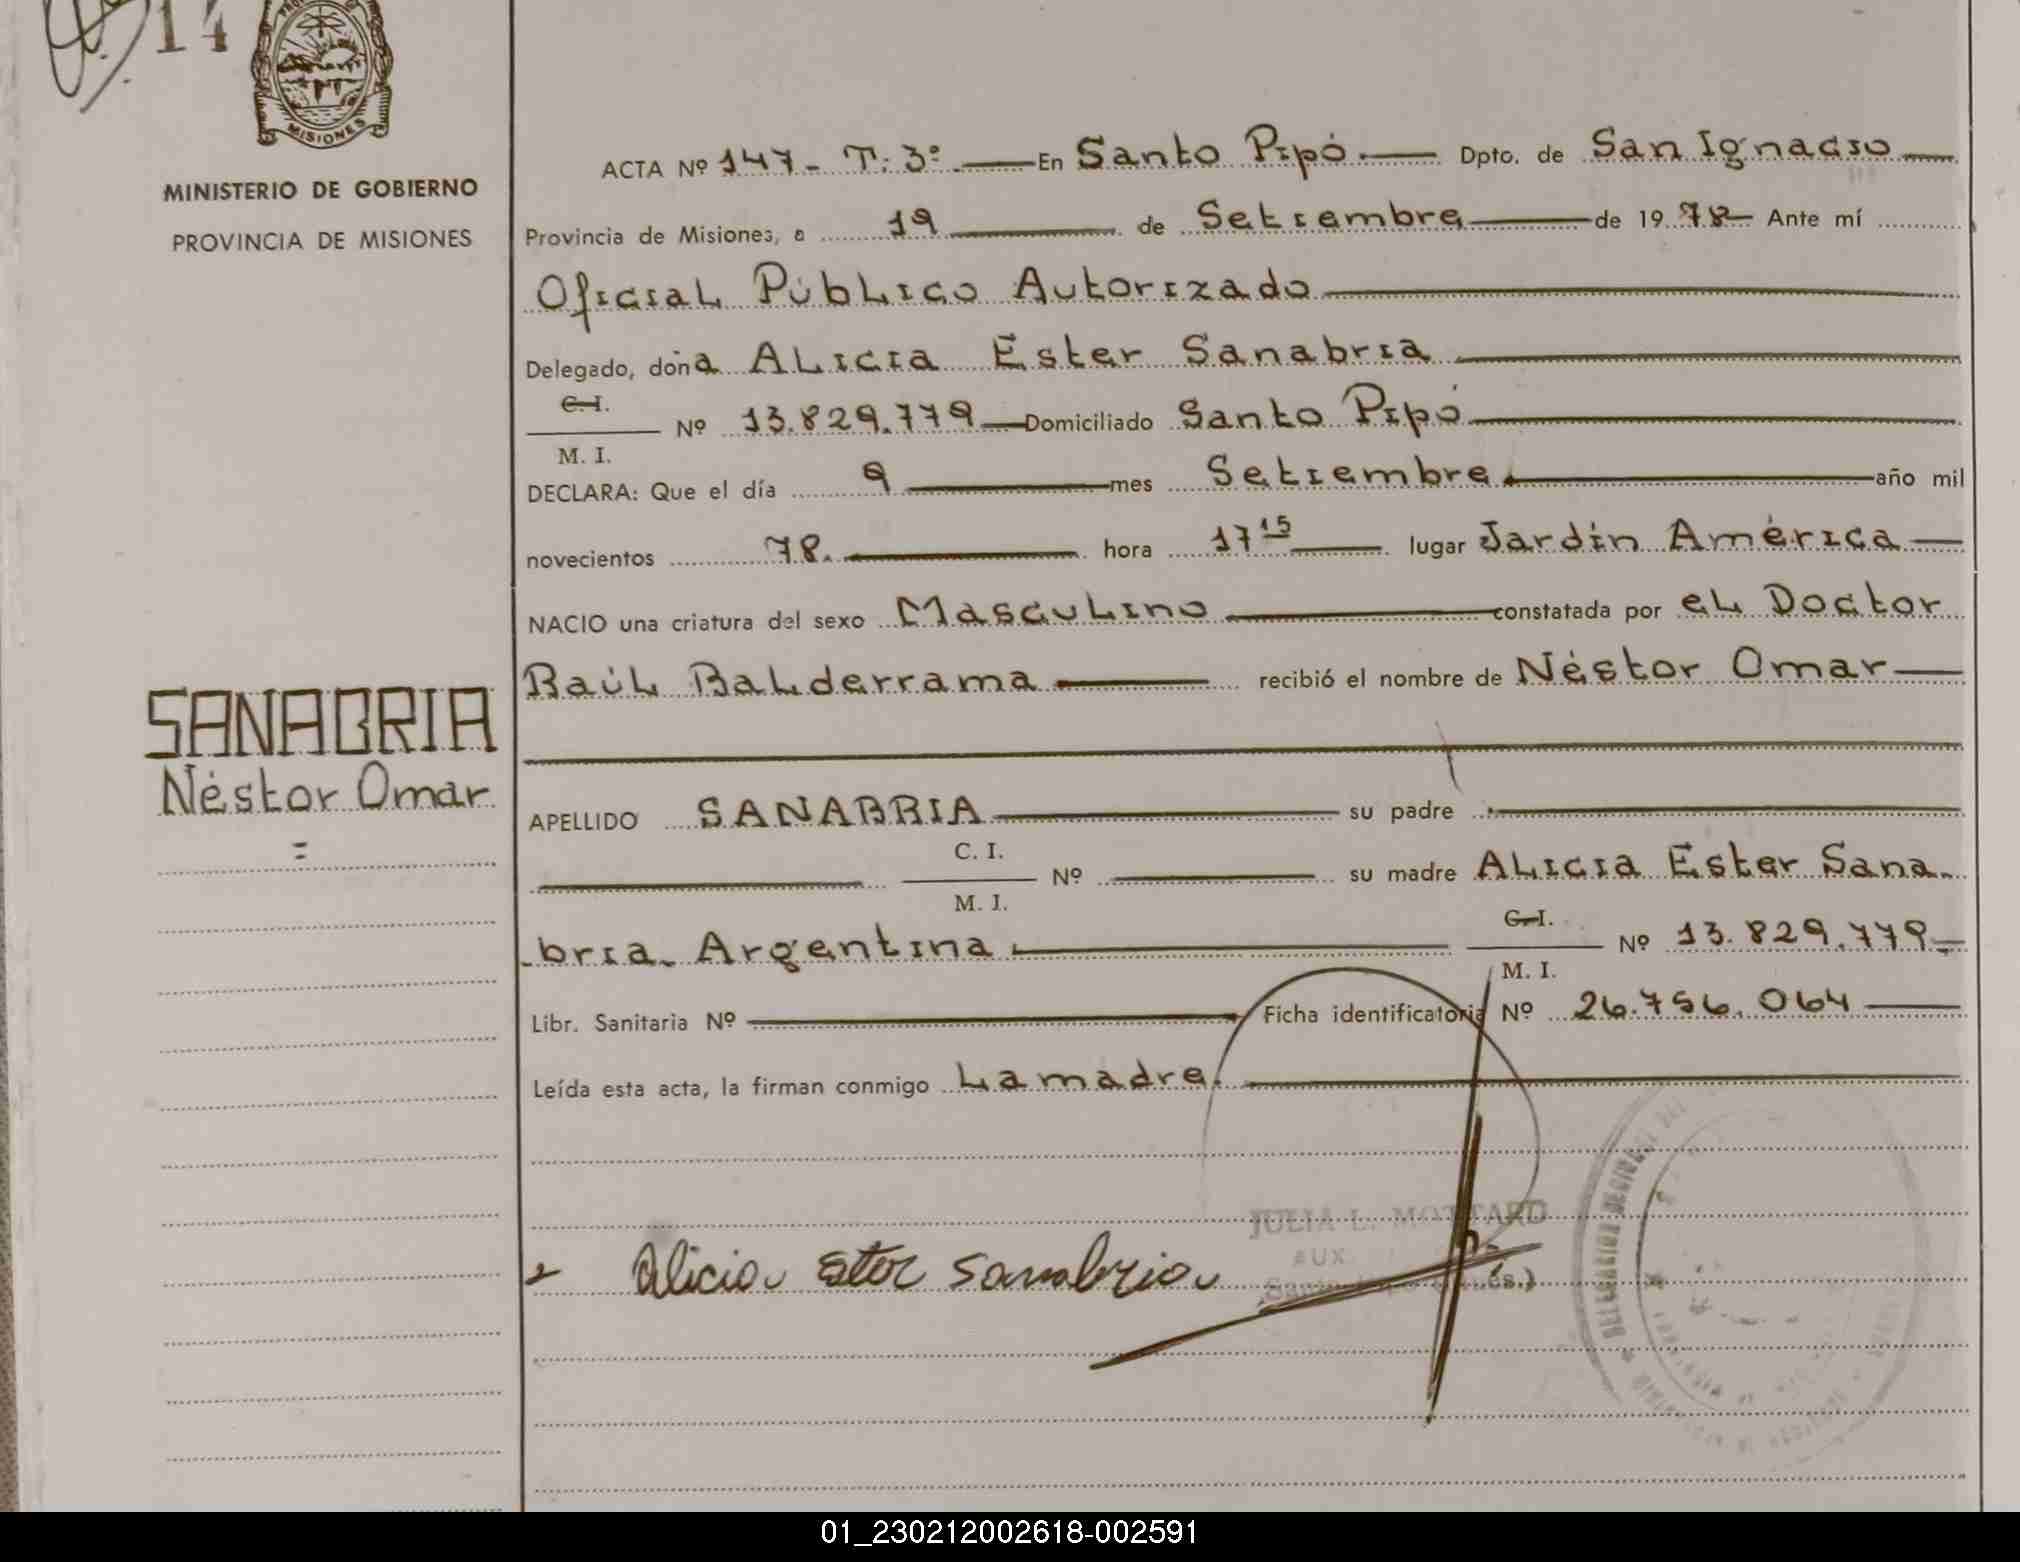 14
MISIONES
MINISTERIO DE GOBIERNO
PROVINCIA DE MISIONES
SANABRIA
Néstor Omar
=
ACTA Nº 147- T: 3º. En Santo Pipó Dpto. de San Ignacio
Provincia de Misiones, a 19 de Setiembre de 19 78 Ante mí
Oficial Público Autorizado
Delegado, doña Alicia Ester Sanabria
C. I.
M. I. Nº 13.829.779 Domiciliado Santo Pipó
DECLARA: Que el día 9 mes Setiembre año mil
novecientos 78. hora 17 15 lugar Jardín América
NACIO una criatura del sexo Masculino constatada por el Doctor
Raúl Balderrama recibió el nombre de Néstor Omar
APELLIDO SANABRIA su padre
C. I.
M. I. Nº su madre Alicia Ester Sana-
bria. Argentina C. I.
M. I. Nº 13.829.779
Libr. Sanitaria Nº Ficha identificatoria Nº 26.756.064
Leída esta acta, la firman conmigo La madre.
JULIA L. MOTTARD
AUX.
Alicia Ester Sanabria
01_230212002618-002591